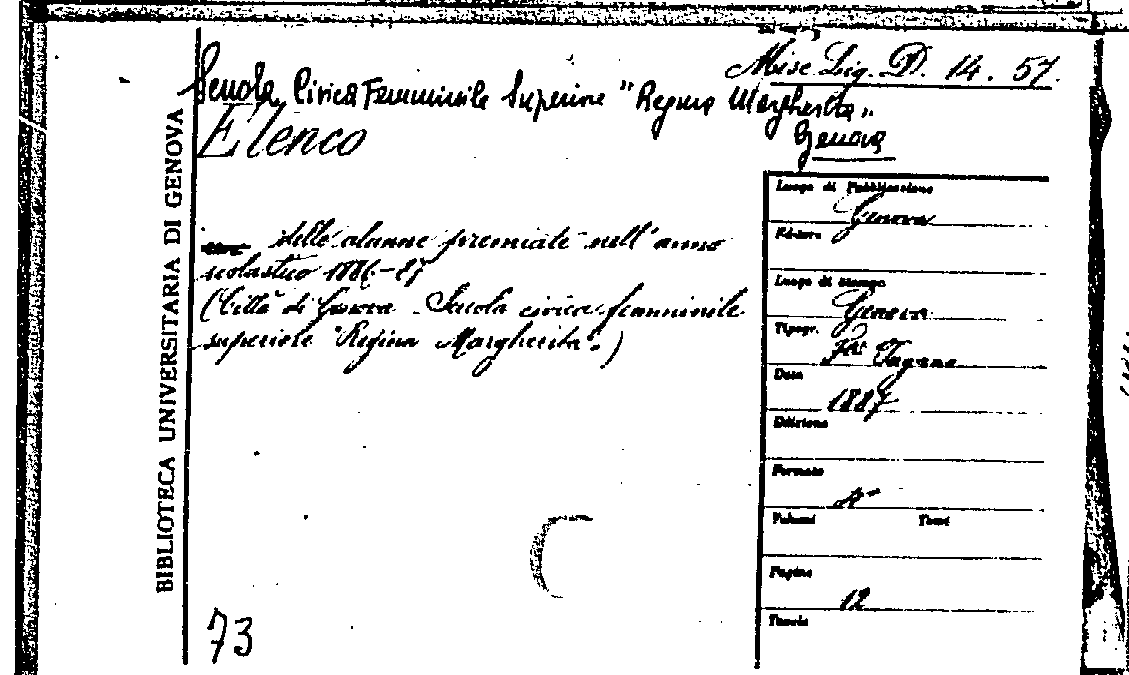 Misc. Lig. D. 14. 57.
Scuola Civica Femminile Superiore "Regina Margherita"
Genova
Elenco
delle alunne premiate nell'anno
scolastico 1886-87
(Città di Genova - Scuola civica femminile
superiore "Regina Margherita".)
73
BIBLIOTECA UNIVERSITARIA DI GENOVA
Luogo di Pubblicazione
Genova
Editore
Luogo di stampa
Genova
Tipogr.
Pagano
Data
1887
Edizione
Formato
Volumi Tomi
Pagine
12
Tavole